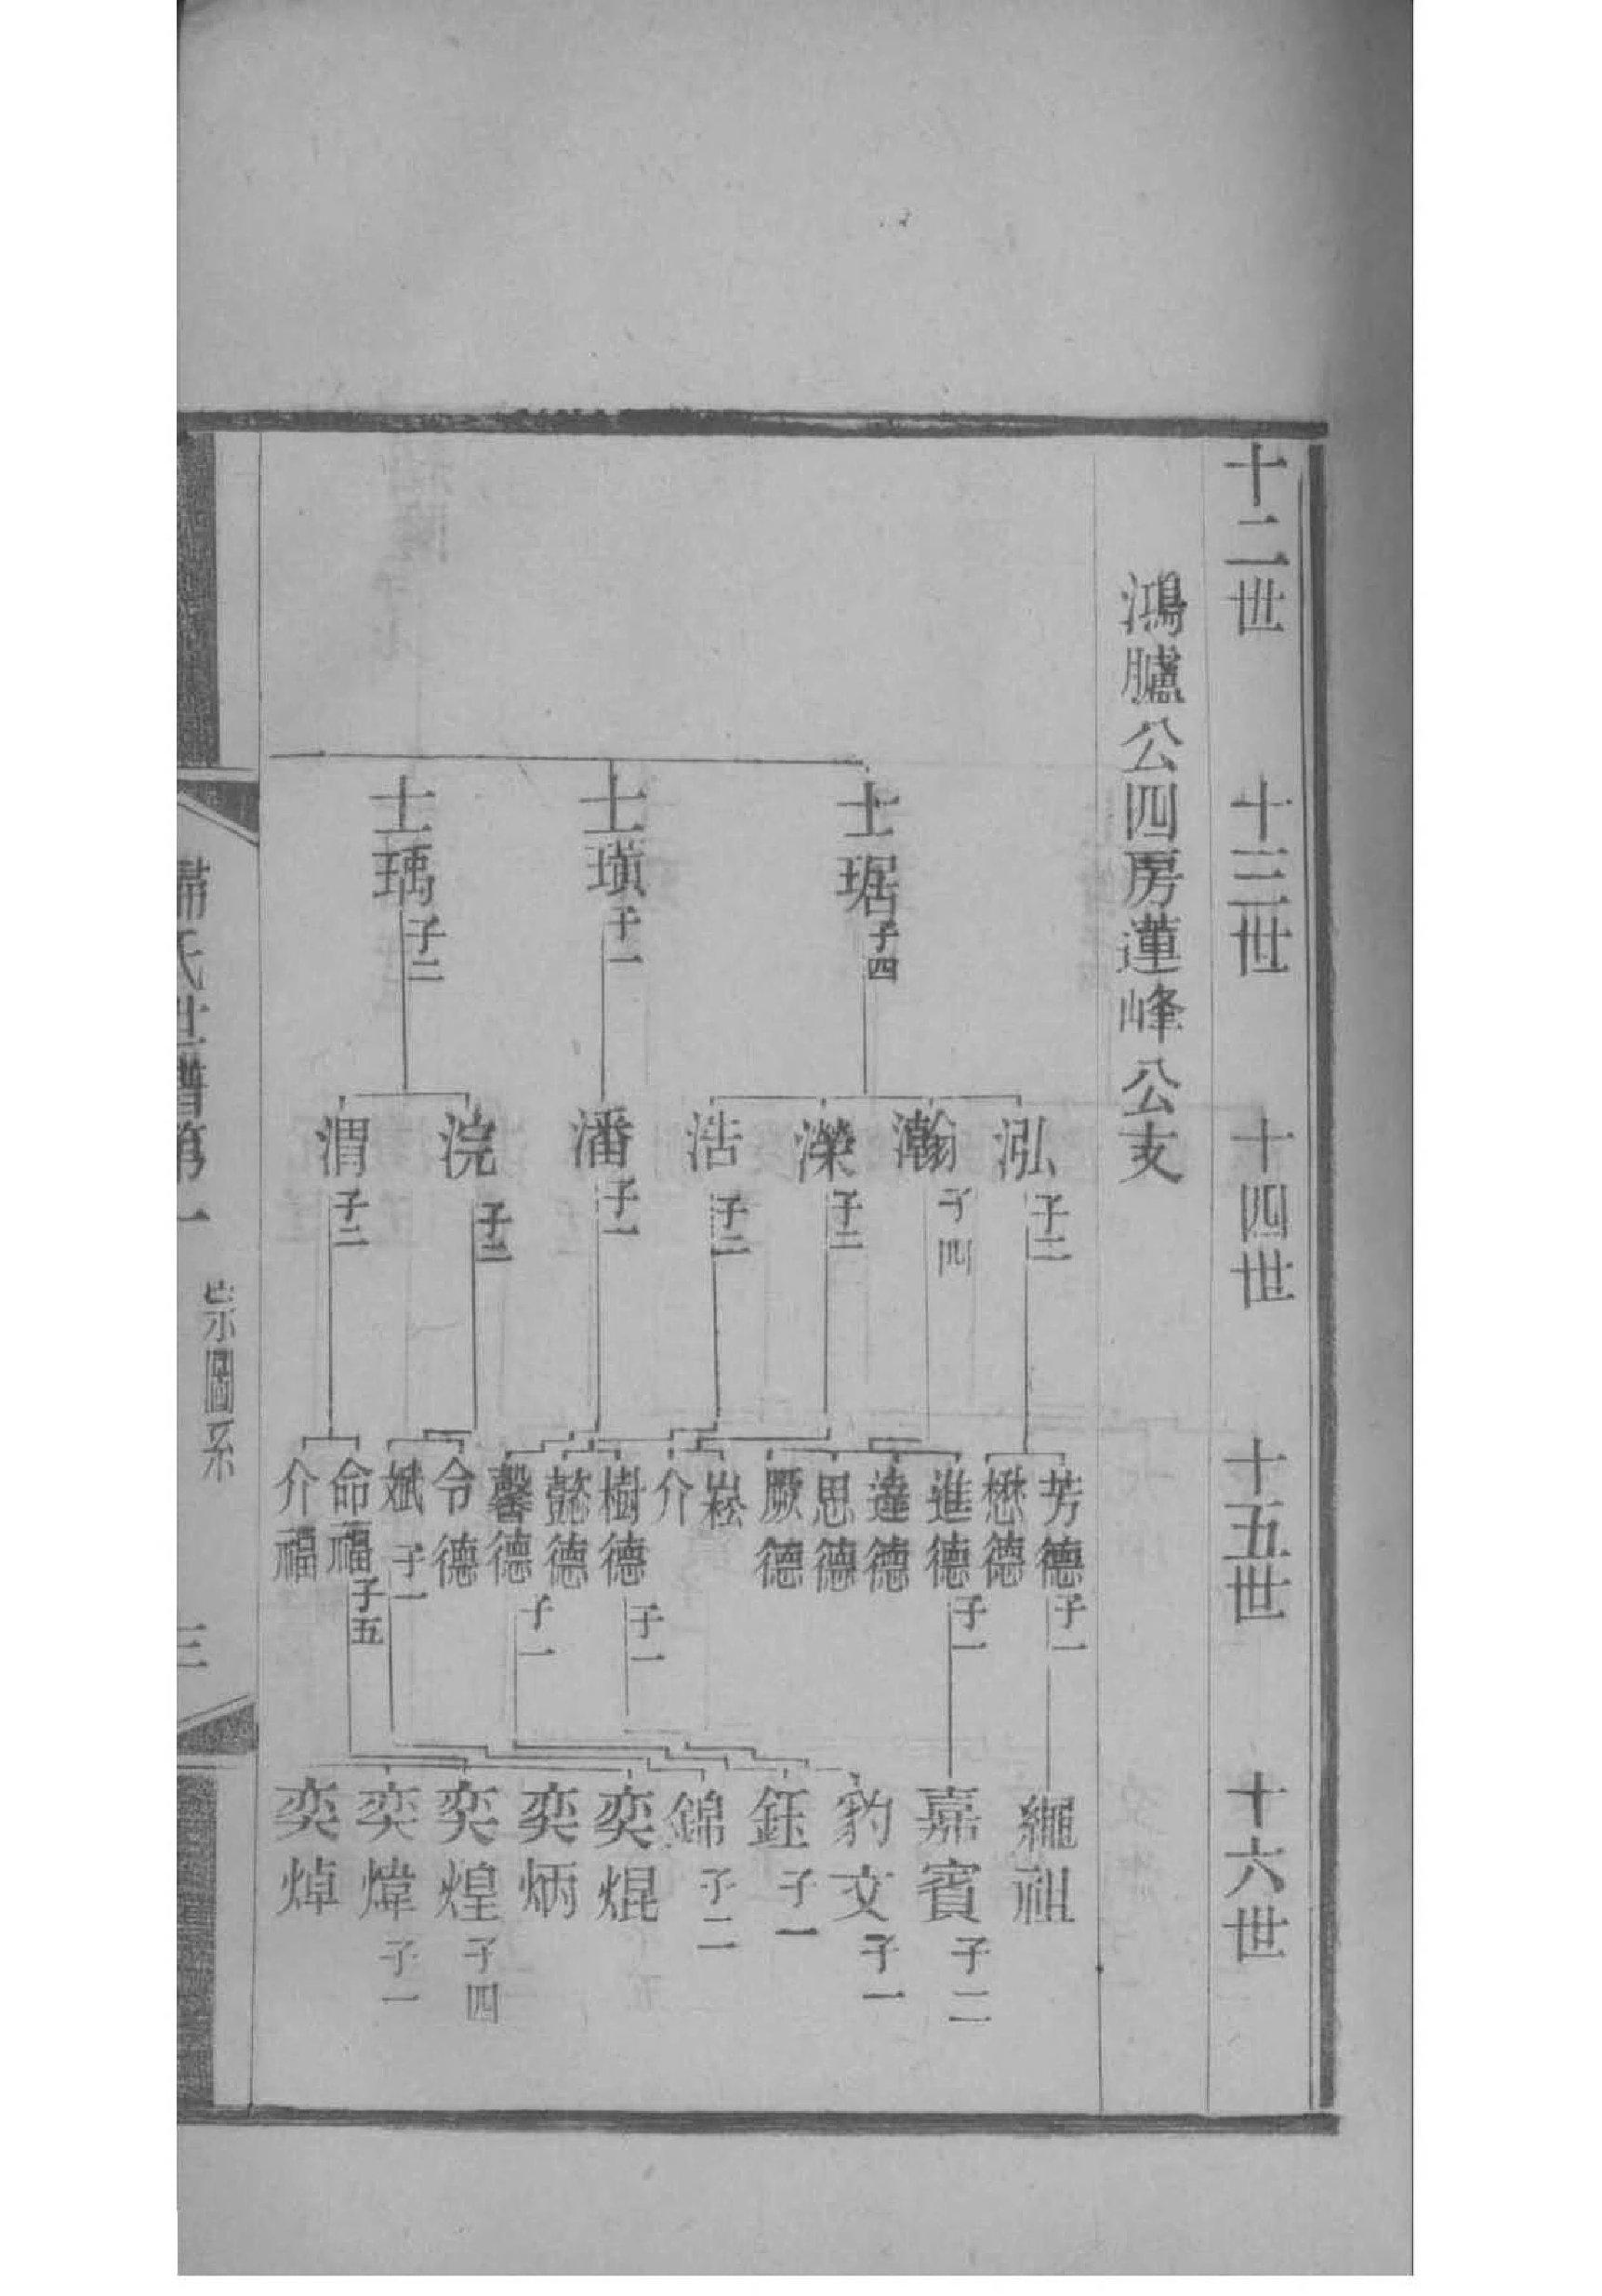 十二世
十三世
十四世
十五世
十六世
鴻臚公四房蓮峰公支
士琚子四
士瑱子一
士瑀子二
泓子二
瀚子四
濚子二
浩子二
潘子一
浣子二
渭子二
芳德子一
懋德
進德子一
達德
思德
厥德
崧
介
樹德子一
懿德
馨德子一
令德
斌子一
命福子五
介福
繩祖
嘉賓子二
豹文子一
鈺子一
錦子二
奕焜
奕炳
奕煌子四
奕煒子一
奕焯
歸氏世譜第一
宗圖系
三